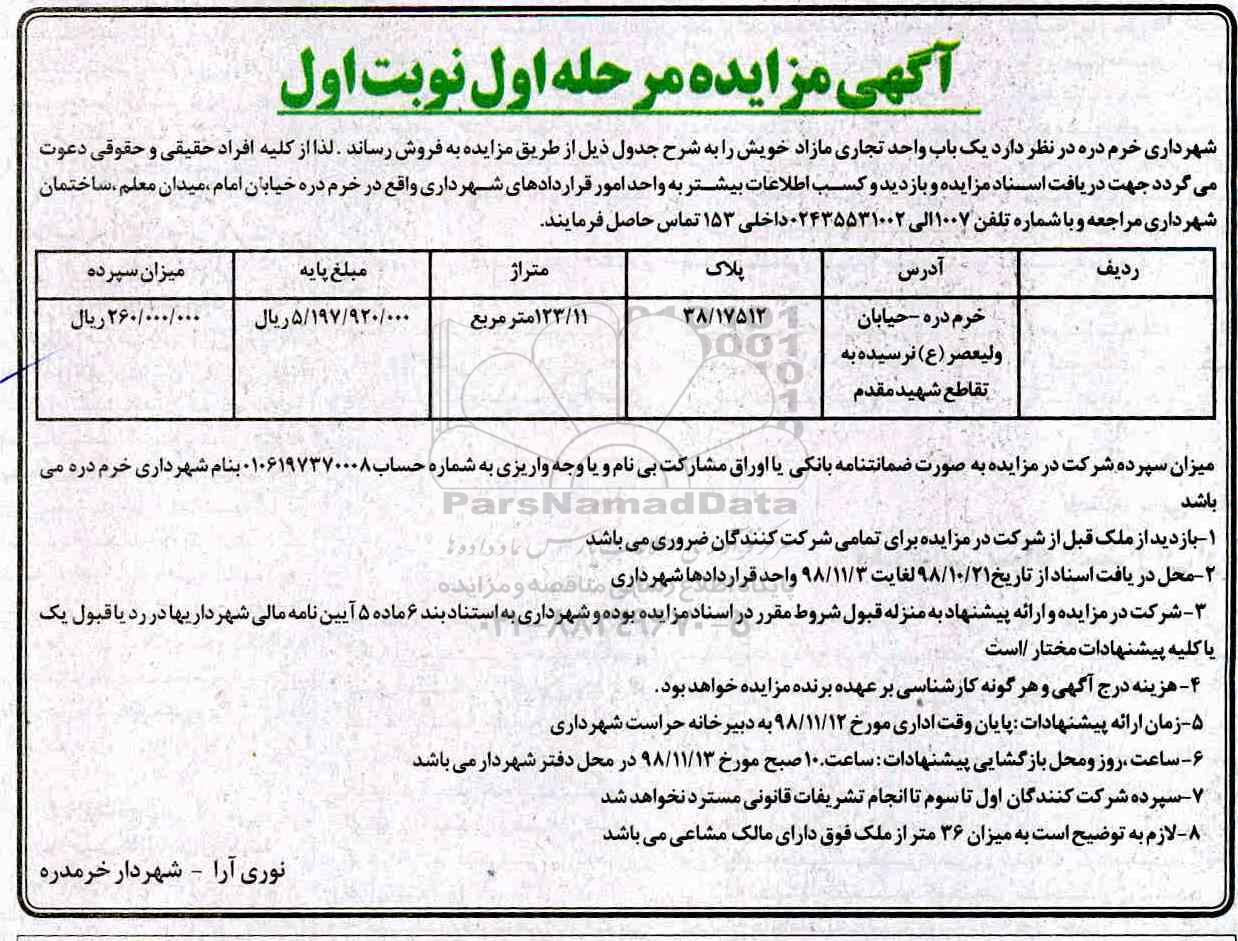 آگهی مزایده مرحله اول نوبت اول
شهرداری خرم دره در نظر دارد یک باب واحد تجاری مازاد خویش را به شرح جدول ذیل از طریق مزایده به فروش رساند . لذا از کلیه افراد حقیقی و حقوقی دعوت
می گردد جهت دریافت اسناد مزایده و بازدید و کسب اطلاعات بیشتر به واحد امور قراردادهای شهرداری واقع در خرم دره خیابان امام ،میدان معلم ،ساختمان
شهرداری مراجعه و با شماره تلفن ۱۰۰۷الی ۰۲۴۳۵۵۳۱۰۰۲داخلی ۱۵۳ تماس حاصل فرمایند.
ردیف آدرس پلاک متراژ مبلغ پایه میزان سپرده
خرم دره -خیابان ۳۸/۱۷۵۱۲ ۱۲۳/۱۱متر مربع ۵/۱۹۷/۹۲۰/۰۰۰ریال ۲۶۰/۰۰۰/۰۰۰ریال
ولیعصر (ع) نرسیده به
تقاطع شهید مقدم
میزان سپرده شرکت در مزایده به صورت ضمانتنامه بانکی یا اوراق مشارکت بی نام و یا وجه واریزی به شماره حساب۰۱۰۶۱۹۷۳۷۰۰۰۸بنام شهرداری خرم دره می
باشد
ParsNamadData
۱-بازدید از ملک قبل از شرکت در مزایده برای تمامی شرکت کنندگان ضروری می باشد
۲-محل دریافت اسناد از تاریخ۹۸/۱۰/۲۱لغایت ۹۸/۱۱/۳ واحد قراردادها شهرداری
پایگاه اطلاع رسانی مناقصه و مزایده
۳-شرکت در مزایده و ارائه پیشنهاد به منزله قبول شروط مقرر در اسناد مزایده بوده و شهرداری به استناد بند ۶ماده ۵ آیین نامه مالی شهرداریها در رد یا قبول یک
یا کلیه پیشنهادات مختار /است
۴-هزینه درج آگهی و هر گونه کارشناسی بر عهده برنده مزایده خواهد بود.
۵-زمان ارائه پیشنهادات :پایان وقت اداری مورخ ۹۸/۱۱/۱۲ به دبیرخانه حراست شهرداری
۶-ساعت ،روز ومحل بازگشایی پیشنهادات : ساعت۱۰.صبح مورخ ۹۸/۱۱/۱۳ در محل دفتر شهردار می باشد
۷-سپرده شرکت کنندگان اول تا سوم تا انجام تشریفات قانونی مسترد نخواهد شد
۸-لازم به توضیح است به میزان ۳۶ متر از ملک فوق دارای مالک مشاعی می باشد
نوری آرا - شهردار خرمدره